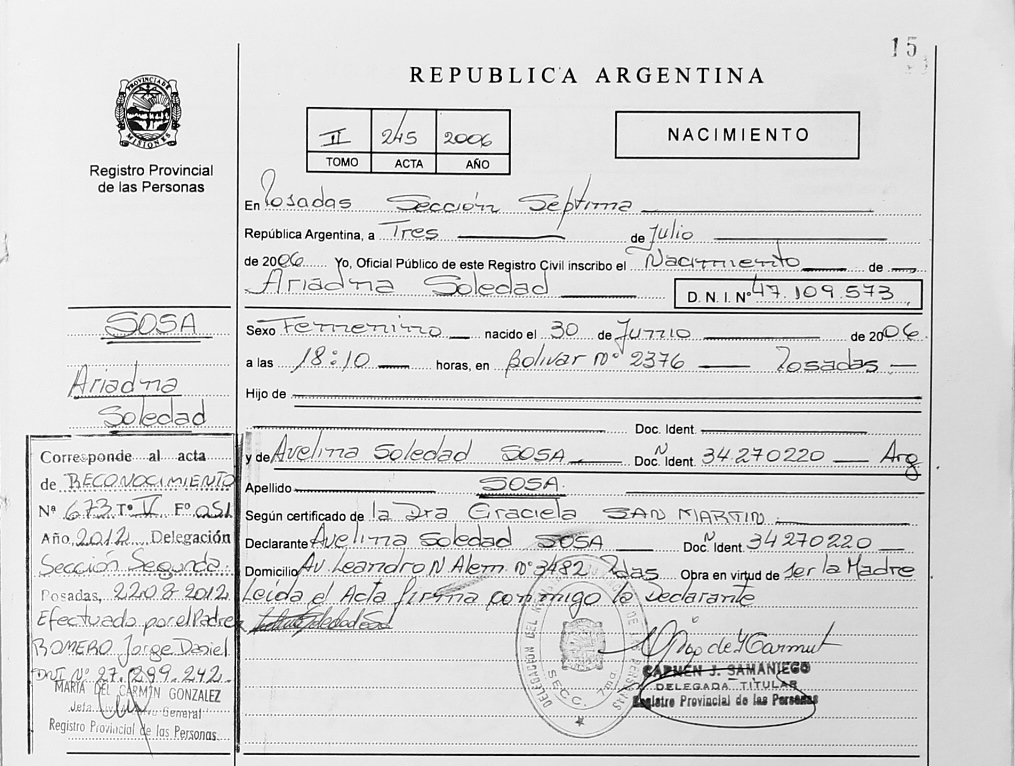 15
REPUBLICA ARGENTINA
PROVINCIA DE MISIONES
Registro Provincial
de las Personas
II 245 2006
TOMO ACTA AÑO
NACIMIENTO
En Posadas Sección Septima
República Argentina, a Tres de Julio
de 2006 Yo, Oficial Público de este Registro Civil inscribo el Nacimiento de
Ariadna Soledad D. N. I. Nº 47.109.573
Sexo Femenino nacido el 30 de Junio de 2006
a las 18:10 horas, en Bolivar Nº 2376 Posadas
Hijo de
Doc. Ident.
y de Avelina Soledad SOSA Doc. N Ident. 34.270220 Arg
Apellido SOSA
Según certificado de la Dra Graciela SAN MARTIN
Declarante Avelina Soledad SOSA Doc. N Ident 34270220
Domicilio Av. Leandro N Alem Nº 3482 Pdas Obra en virtud de ser la Madre
Leida el Acta firma conmigo la declarante
SOSA
Ariadna
Soledad
Corresponde al acta
de RECONOCIMIENTO
Nº 673 Tº V Fº 051
Año 2012 Delegación
Sección Segunda
Posadas, 22 08 2012
Efectuado por el Padre
ROMERO Jorge Daniel
DNI Nº 27.299.242
MARIA DEL CARMEN GONZALEZ
General
Registro Provincial de las Personas
SECC. 7ma
CARMEN J. SAMANIEGO
DELEGADA TITULAR
Registro Provincial de las Personas